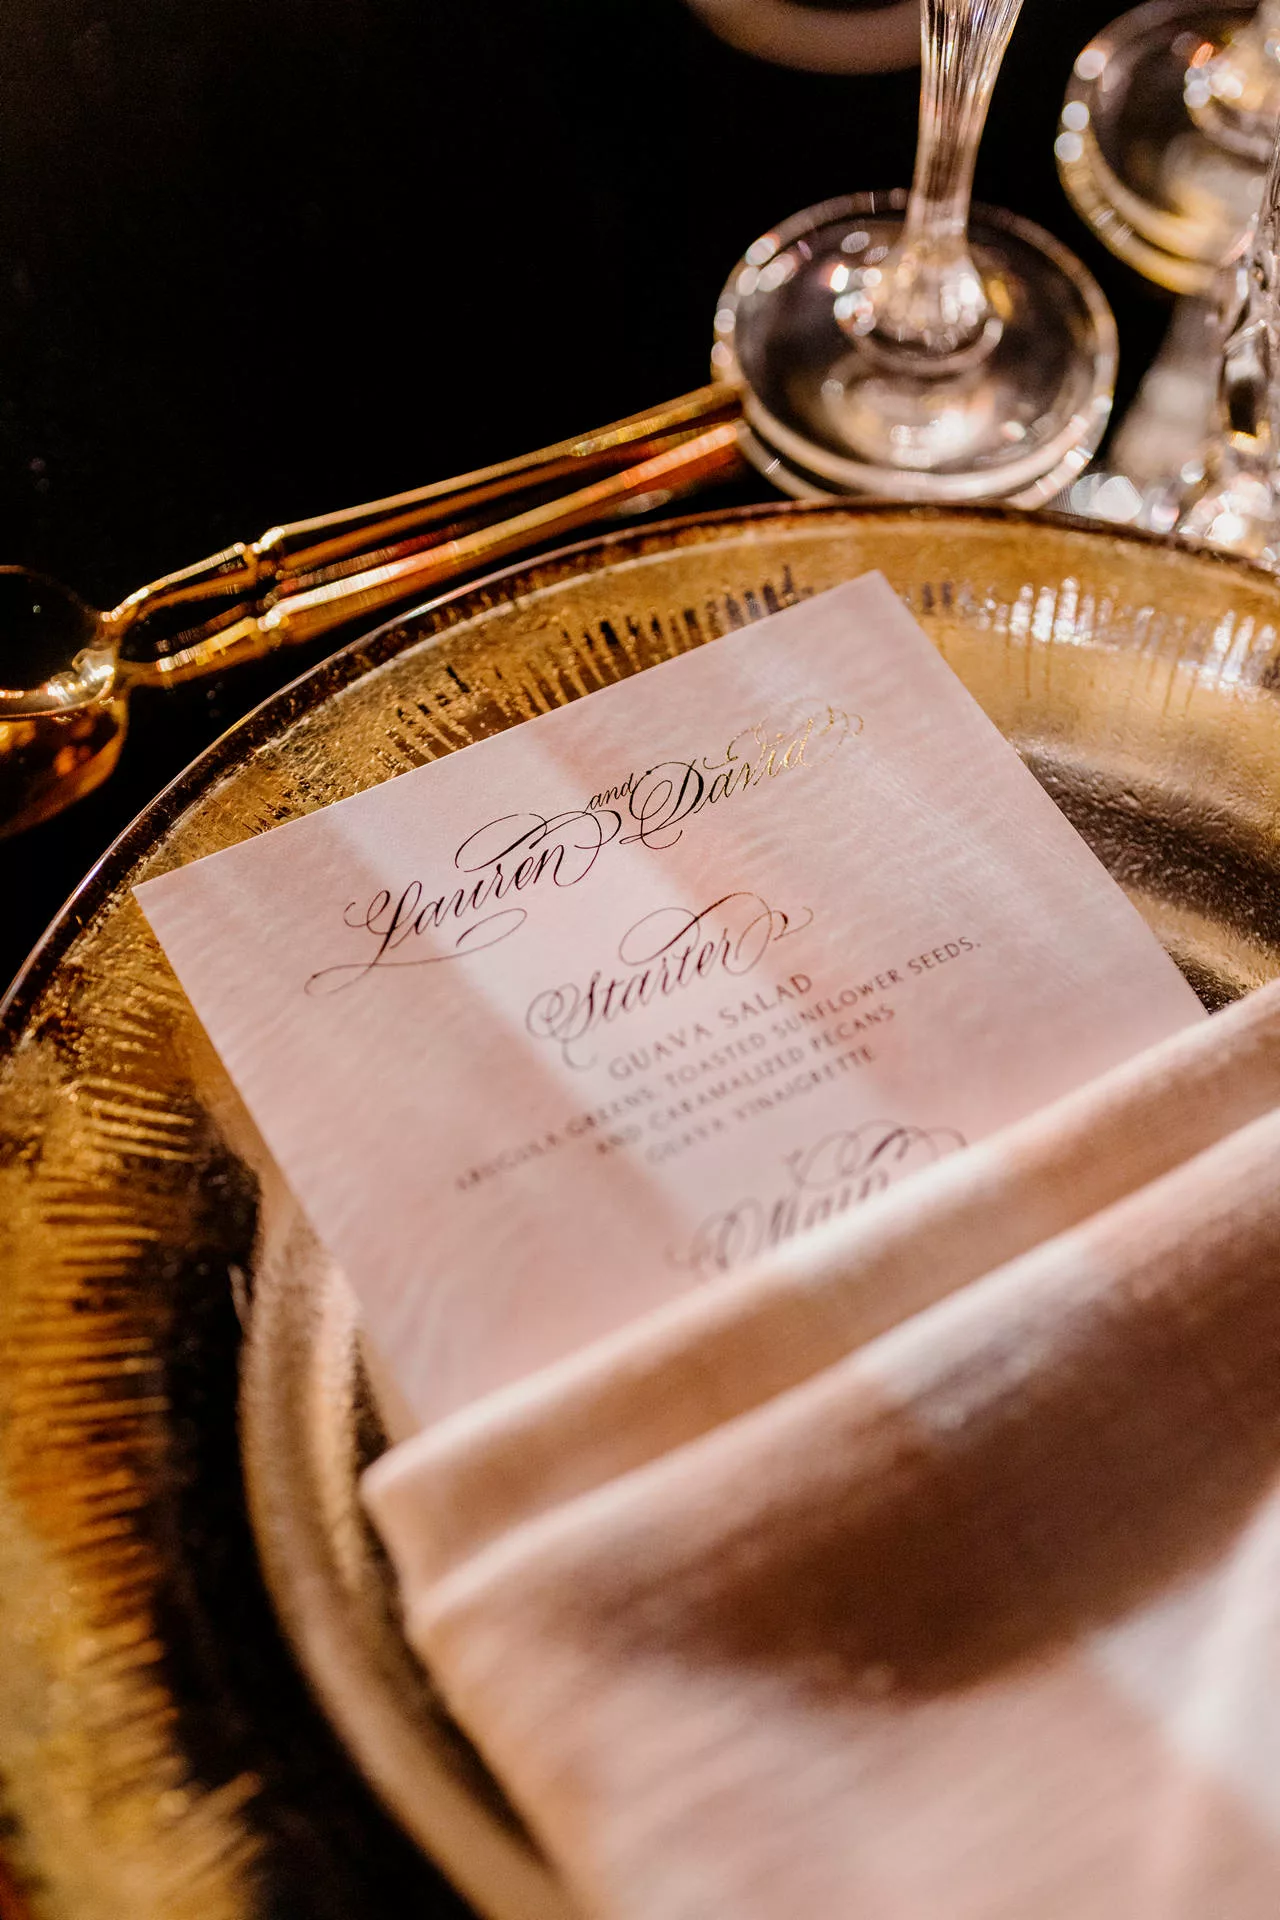 Lauren and David
Starter
GUAVA SALAD
ARUGULA GREENS, TOASTED SUNFLOWER SEEDS,
AND CARAMALIZED PECANS
GUAVA VINAIGRETTE
Main